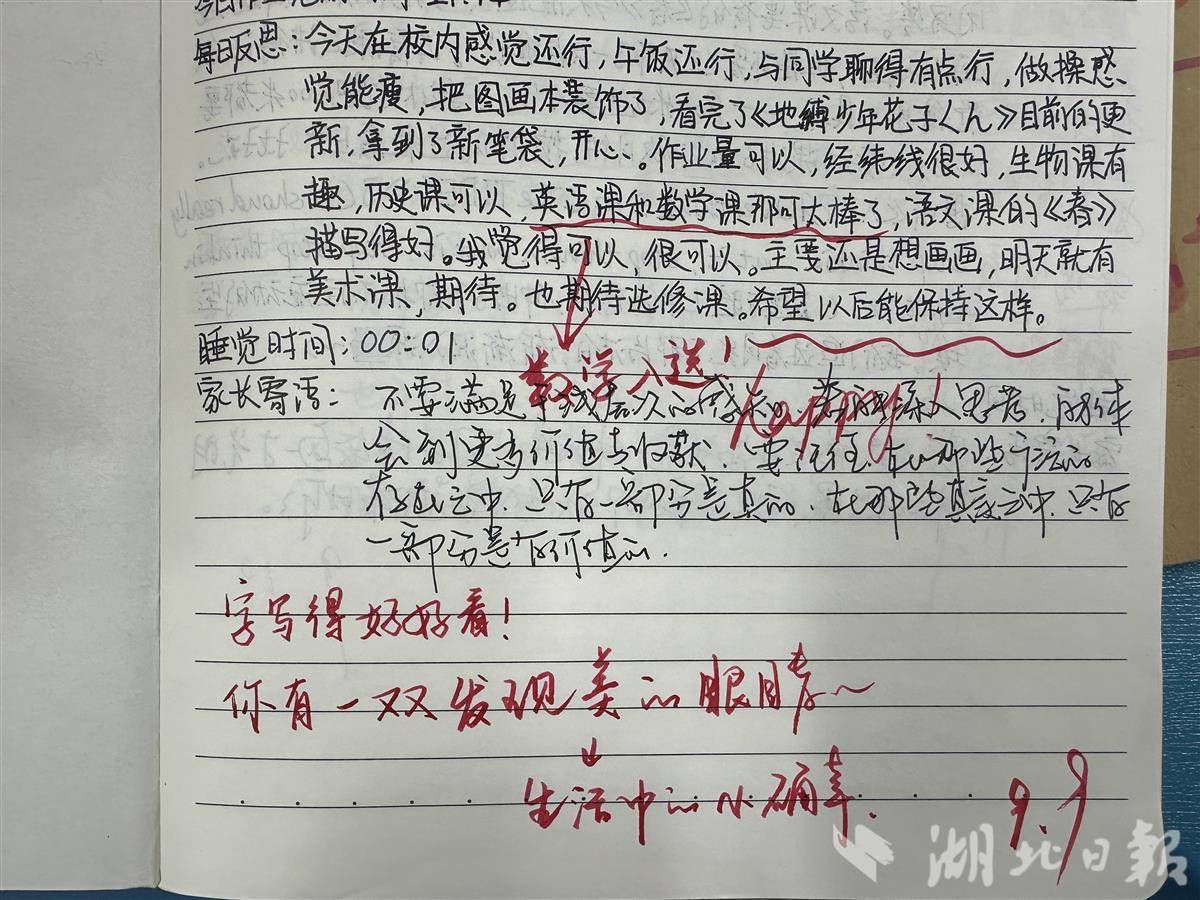 每日反思：今天在校内感觉还行，午饭还行，与同学聊得有点行，做操感
觉能瘦，把图画本装饰了，看完了《地缚少年花子くん》目前的更
新，拿到了新笔袋，开心、。作业量可以，经纬线很好，生物课有
趣，历史课可以，英语课和数学课那可太棒了，语文课的《春》
描写得好。我觉得可以，很可以。主要还是想画画，明天就有
美术课，期待。也期待选修课。希望以后能保持这样。
睡觉时间：00:01
数学入选！
happy！
家长寄语： 不要满足于浅层次的 深入思考，
会到更多价值与收获，要记住，在那些 的
存在之中，只有一部分是真的，在那些真 之中，只有
一部分是有价值的.
字写得好好看！
你有一双发现美的眼睛~
生活中的小确幸.
9.9
湖北日報